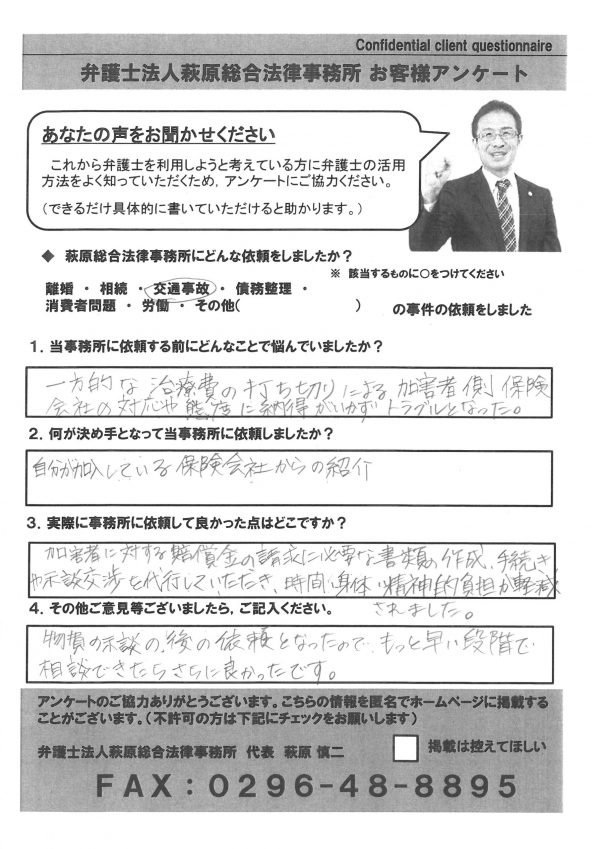 Confidential client questionnaire
弁護士法人萩原総合法律事務所 お客様アンケート
あなたの声をお聞かせください
これから弁護士を利用しようと考えている方に弁護士の活用
方法をよく知っていただくため，アンケートにご協力ください。
（できるだけ具体的に書いていただけると助かります。）
◆ 萩原総合法律事務所にどんな依頼をしましたか？
※ 該当するものに○をつけてください
離婚 ・ 相続 ・ 交通事故 ・ 債務整理 ・
消費者問題 ・ 労働 ・ その他( ) の事件の依頼をしました
1．当事務所に依頼する前にどんなことで悩んでいましたか？
一方的な治療費の打ち切りによる加害者側保険
会社の対応や態度に納得がいかずトラブルとなった。
2．何が決め手となって当事務所に依頼しましたか？
自分が加入している保険会社からの紹介
3．実際に事務所に依頼して良かった点はどこですか？
加害者に対する賠償金の請求に必要な書類の作成、手続き
や示談交渉を代行していただき、時間・身体・精神的負担が軽減
されました。
4．その他ご意見等ございましたら，ご記入ください。
物損の示談の後の依頼となったので、もっと早い段階で
相談できたらさらに良かったです。
アンケートのご協力ありがとうございます。こちらの情報を匿名でホームページに掲載する
ことがございます。（不許可の方は下記にチェックをお願いします）
弁護士法人萩原総合法律事務所 代表 萩原 慎二
掲載は控えてほしい
ＦＡＸ：０２９６-４８-８８９５